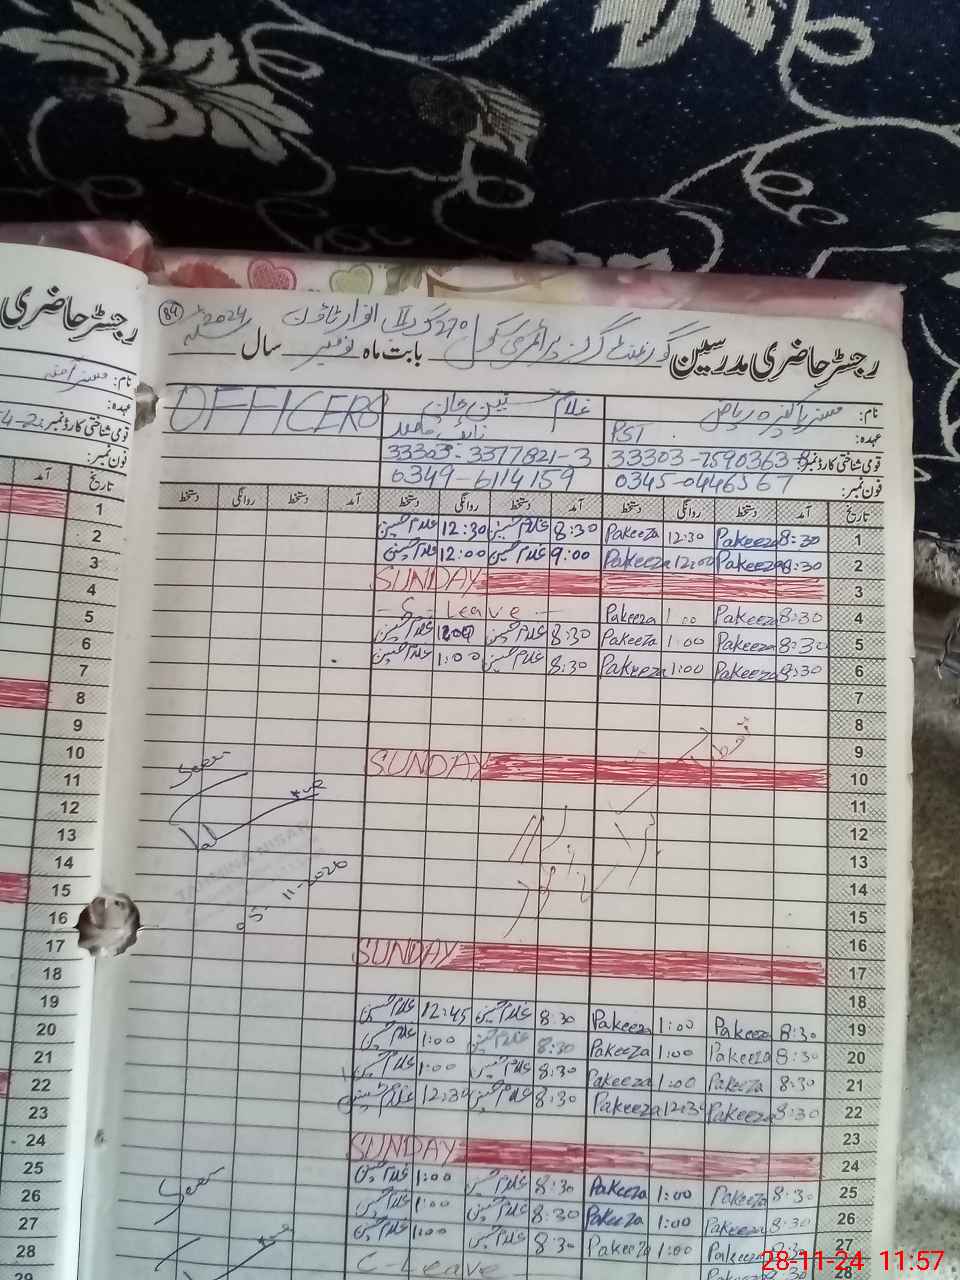 رجسٹر حاضری
84
رجسٹر حاضری مدرسین گورنمنٹ گرلز پرائمری سکول 270 گ ب II انوار ٹاؤن بابت ماہ نومبر سال 2024
نام: مسز پاکیزہ ریاض
غلام حسین
OFFICERS
عہدہ: PST
نائب قاصد
قومی شناختی کارڈ نمبر: 33303-7590363-8 33303-3377821-3
فون نمبر: 0345-0446567 0349-6114159
تاریخ آمد دستخط روانگی دستخط آمد دستخط روانگی دستخط آمد دستخط روانگی دستخط
1 8:30 Pakeeza 12:30 Pakeeza 8:30 غلام حسین 12:30 غلام حسین
2 8:30 Pakeeza 12:00 Pakeeza 9:00 غلام حسین 12:00 غلام حسین
3 SUNDAY
4 8:30 Pakeeza 1:00 Pakeeza Leave
5 8:30 Pakeeza 1:00 Pakeeza 8:30 غلام حسین غلام حسین
6 8:30 Pakeeza 1:00 Pakeeza 8:30 غلام حسین 1:00 غلام حسین
7
8
9
10 SUNDAY
Seen
11
12
13
14
15
16
17 SUNDAY
18
19 8:30 Pakeeza 1:00 Pakeeza 8:30 غلام حسین 12:45 غلام حسین
20 8:30 Pakeeza 1:00 Pakeeza 8:30 غلام حسین 1:00 غلام حسین
21 8:30 Pakeeza 1:00 Pakeeza 8:30 غلام حسین 1:00 غلام حسین
22 8:30 Pakeeza 12:30 Pakeeza 8:30 غلام حسین 12:30 غلام حسین
23
24 SUNDAY
25 8:30 Pakeeza 1:00 Pakeeza 8:30 غلام حسین 1:00 غلام حسین
26 8:30 Pakeeza 1:00 Pakeeza 8:30 غلام حسین 1:00 غلام حسین
Seen
27 8:30 Pakeeza 1:00 Pakeeza 8:30 غلام حسین 1:00 غلام حسین
28 8:30 Pakeeza C-Leave
نام:
عہدہ:
قومی شناختی کارڈ نمبر:
فون نمبر:
تاریخ آمد
1
2
3
4
5
6
7
8
9
10
11
12
13
14
15
16
17
18
19
20
21
22
23
24
25
26
27
28
29
28-11-24 11:57